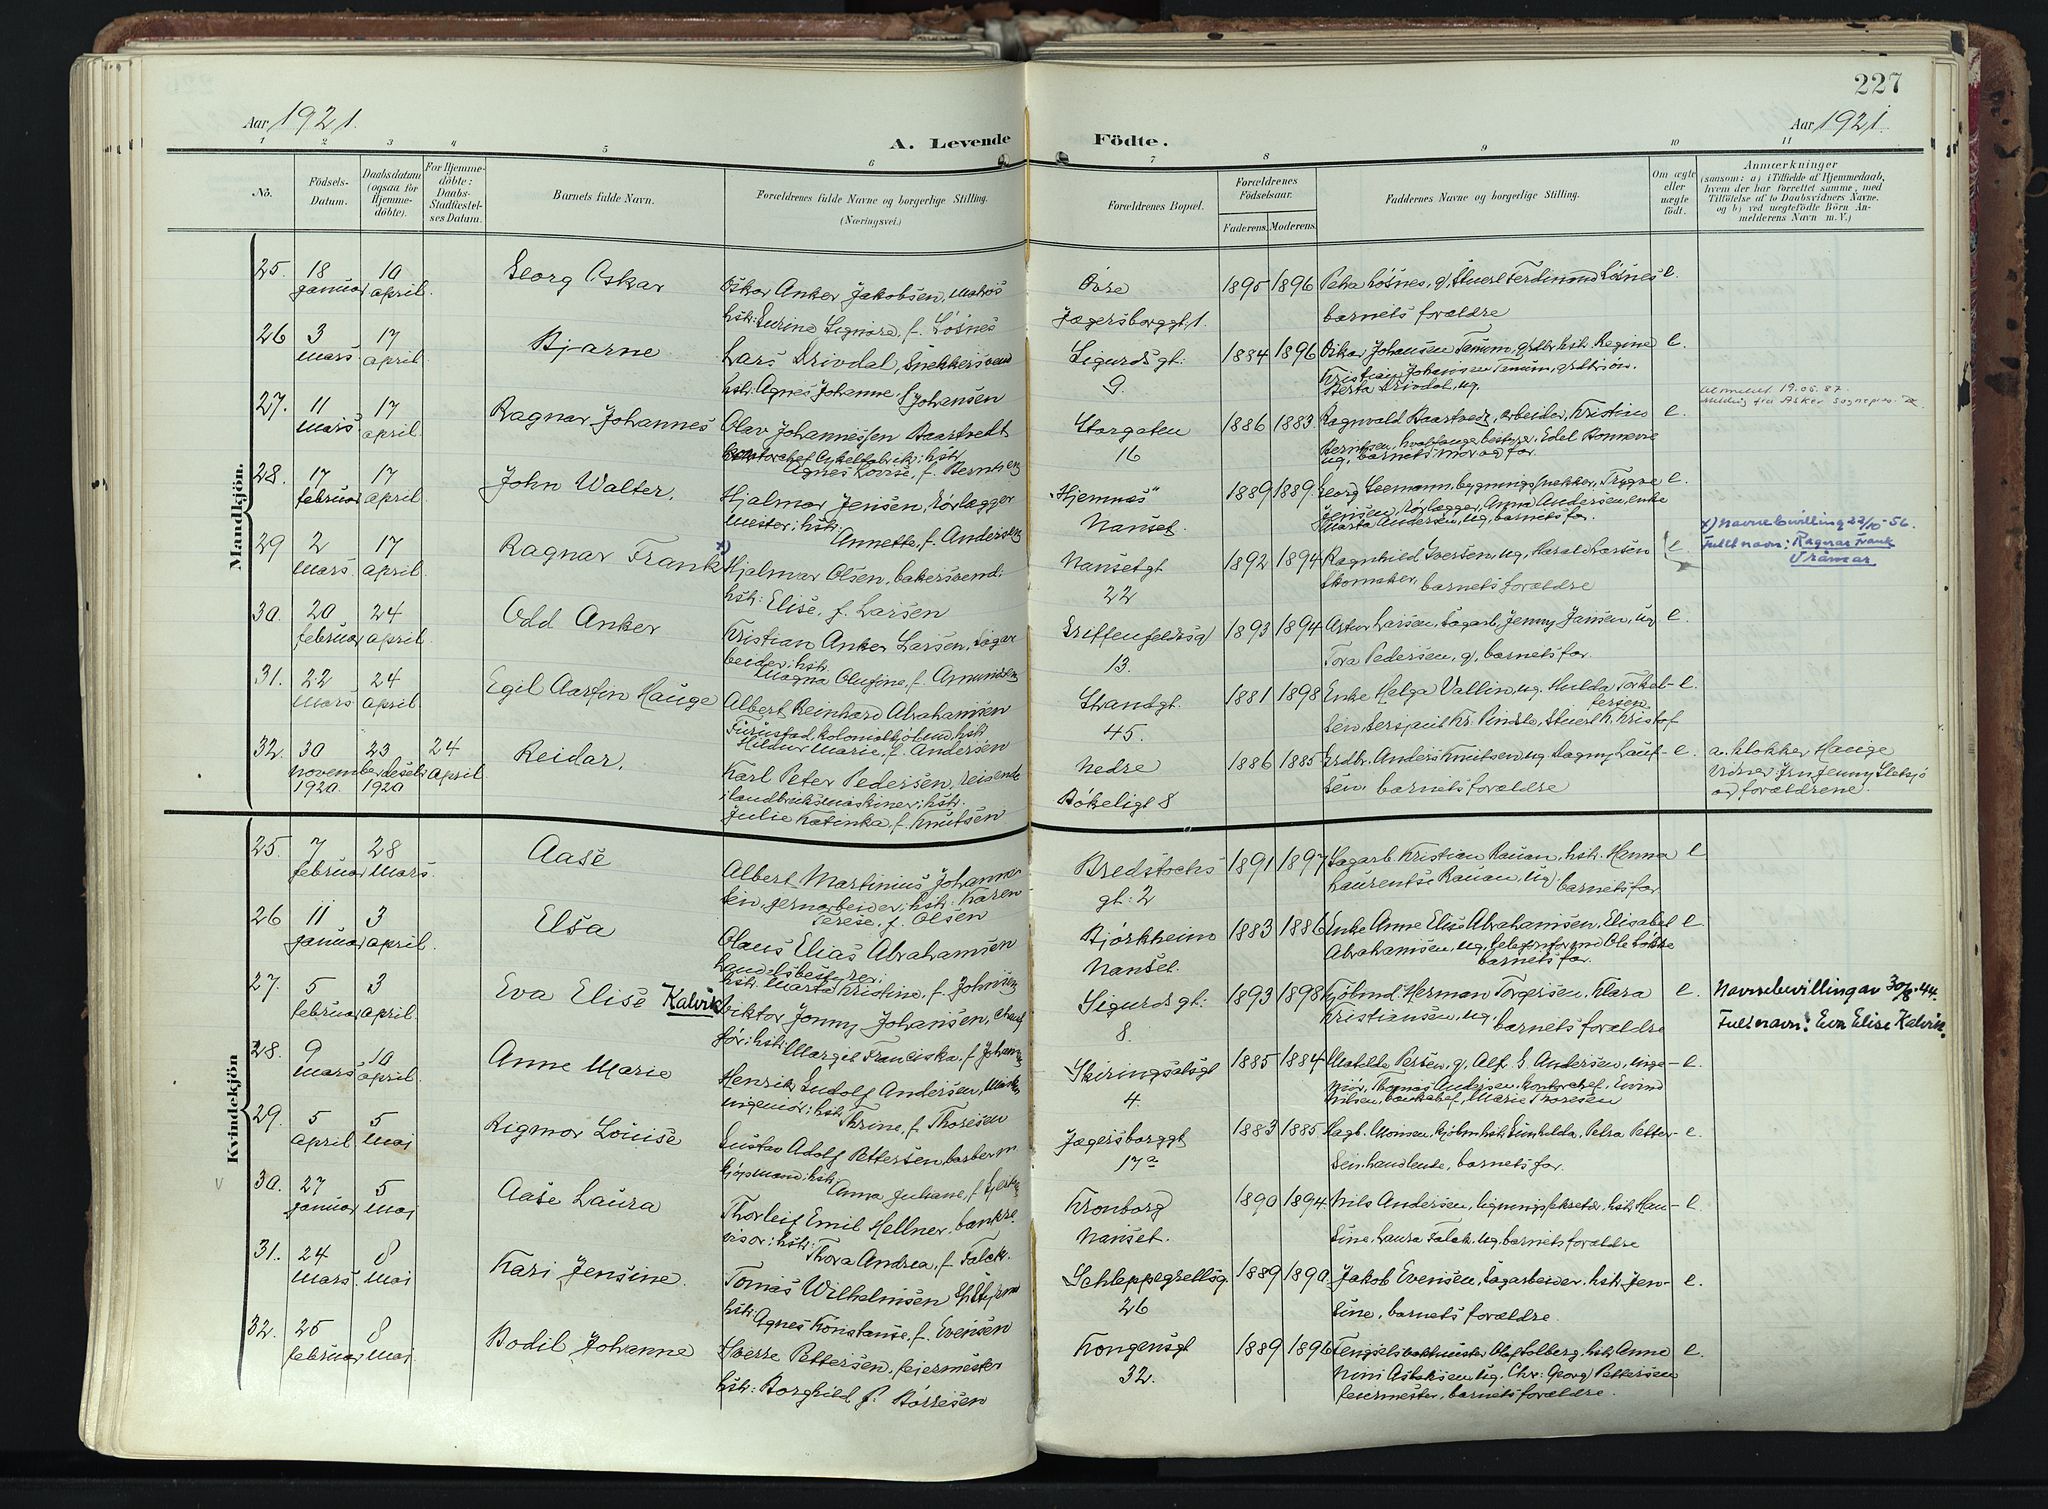 227
Aar 1921.
Aar 1921.
A. Levende Födte.
1 2 3 4 5 6 7 8 9 10 11
Nö.
Födsels-Datum.
Daabsdatum (ogsaa for Hjemme-döbte).
For Hjemme-döbte: Daabs-Stadfæstel-ses Datum.
Barnets fulde Navn.
Forældrenes fulde Navne og borgerlige Stilling. (Næringsvei.)
Forældrenes Bopæl.
Forældrenes Födselsaar.
Faderens. Moderens.
Faddernes Navne og borgerlige Stilling.
Om ægte eller uægte födt.
Anmærkninger
(saasom: a) i Tilfælde af Hjemmedaab, hvem der har forrettet samme, med Tilföielse af to Daabsvidners Navne, og b) ved uægtefödte Börn An-melderens Navn m. V.)
Mandkjön.
25. 18 januar 10 april. Georg Oskar
Oskar Anker Jakobsen, matros
hstr: Surine Signora, f. Løsnes
Övre Jægersborggt. 1.
1895 1896
Petra Løsnes, g, Stuert Ferdinand Løsnes
barnets forældre
e.
26 3 mars 17 april Bjarne
Lars Drivdal, Snekkersvend
hstr: Agnes Johanne f Johansen
Sigurdsgt: 9.
1884 1896
Oskar Johansen Tanum, grdbr. hstr. Regine
Kristian Johansen Tanum, grdbrsøn.
Berta Drivdal, ug.
e.
27. 11 mars 17 april. Ragnar Johannes
Olav Johannessen Baastvedt
kontorchef Cykelfabrik; hstr.
Agnes Lovise, f. Berntsen
Storgaten 16
1886 1883
Ragnvald Baastvedt, arbeider, Kristine
Berntsen, hvalfangerbestyrer, Edel Bonnevie
ug, barnets mor og far.
e.
Utmeldt 19.05.87.
28. 17 februar 17 april John Walter.
Hjalmar Jensen, rørlægger
mester; hstr.
Annette, f. Andersen
"Hjemnes" Nanset.
1889 1889
Georg Seemann, bygningssnekker, Trygve
Jensen, rørlægger, Anna Andersen, enke
Marta Andersen, ug, barnets far.
e.
29 2 mars. 17 april. Ragnar Frank x)
Hjalmar Olsen, bakersvend.
hstr: Elise, f. Larsen
Nansetgt 22
1892 1894
Ragnhild Iversen, ug, Harald Larsen
skomaker, barnets forældre
e.
x) Navnebevilling 22/10-56.
Fullt navn: Ragnar Frank
Vråmar
30. 20 februar 24 april. Odd Anker
Kristian Anker Larsen, sagar
beider; hstr.
Magna Olufine, f. Amundsen
Griffenfeldsg 13.
1893 1894
Artur Larsen, Sagarb, Jenny Jansen, ug
Tora Pedersen, g, barnets far.
e.
31. 22 mars 24 april. Egil Aarfin Hauge
Albert Reinhard Abrahamsen
Furustad, kolonialkjøbmd, hstr
Hildur Marie, f. Andersen
Strandgt. 45.
1881 1898
Enke Helga Vallin, ug. Hulda Torkel-
sen, Sersjant Kr. Pindsle, Stuert K. Kristof
fersen.
e.
32. 30 november 1920. 23 desebr 1920 24 april. Reidar.
Karl Peter Pedersen, reisende
i landbruksmaskiner; hstr.
Julie Katinka, f. Knutsen
Nedre Bökeligt 8
1886 1885
Grdbr. Anders Knutsen, ug Dagny Lauf-
sen. barnets forældre
e.
av klokker Hauge
Vidner Jrn. Jenny Sletsjø
og forældrene.
Kvindekjön
25. 7 februar 28 mars. Aase
Albert Martinius Johanne
sen, jernarbeider; hstr. Karen
Terese, f. Olsen
Bredstochs gt: 2
1891 1897
Sagarb. Kristian Rauan, hstr. Hanna
Laurentse Rauan, ug, barnets far
e
26 11 januar 3 april. Elsa
Olaus Elias Abrahamsen
handelsbestyrer;
hstr. Marta Kristine, f. Johnsen
Bjørkheim Nanset.
1883 1886
Enke Anne Elise Abrahamsen, Elisabet
Abrahamsen, ug,
barnets far.
e
27. 5 februar 3 april. Eva Elise Kalvik
Viktor Jonny Johansen, chauf
fór; hstr. Margit Franciska, f. Johanns
Sigurdsgt: 8.
1893 1898
Kjöbmd. Herman Torgersen, Klara
Kristiansen, ug. barnets forældre
e.
Navnebevilling av 30/8-44.
Fullt navn: Eva Elise Kalvik.
28. 9 mars 10 april. Anne Marie
Henrik Ludolf Andersen, Mask
ingeniør; hstr. Thrine, f. Thoresen
Skiringsalsgt 4.
1885 1884
Matilde Persen, g, Alf. G. Andersen, inge-
niør, Thomas Andersen, kontorchef. Eivind
Nilsen, bankchef, Marie Thoresen
e.
29. 5 april 5 mai Rigmor Louise
Gustav Adolf Pettersen barber m
Kjøpmand; hstr. Anna Juliane, f.
Jægersborggt 17a
1883 1885
Hagb. Monsen kjøbm. hstr. Gunhilda, Petra Petter-
sen, handlende, barnets far.
e.
30. 27 januar 5 mai Aase Laura
Thorleif Emil Hellner, bankre
visor; hstr: Thora Andrea, f. Falck.
Kronborg Nanset.
1890 1894
Nils Andersen, ligningssekretær, hstr Han-
sine. Laura Falck, ug, barnets forældre
e.
31. 24 mars. 8 mai Kari Jensine.
Tomas Wilhelmsen
hstr: Agnes Konstanse, f. Evensen
Schleppegrellsg. 26
1889 1890
Jakob Evensen, Sagarbeider, hstr. Jen-
sine, barnets forældre.
e.
32. 25 februar 8 mai. Bodil Johanne
Sverre Pettersen, feiermester
hstr: Borghild f. Börresen
Kongensgt 32.
1889 1896
Fengselsvaktmester Olaf Solberg, hstr Anne
Nini Aslaksen, ug, Chr: Georg Pettersen
feiermester, barnets forældre.
e.